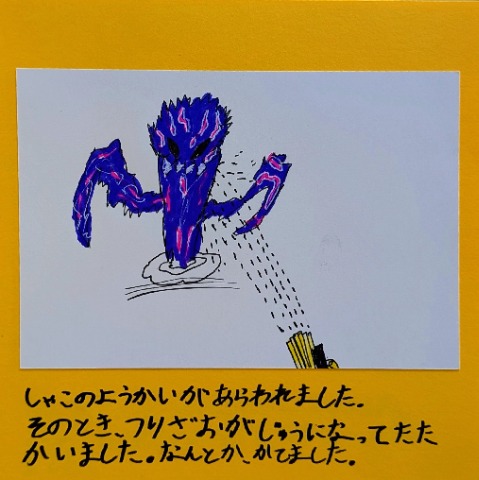 しゃこのようかいがあらわれました。
そのとき、つりざおがじゅうになってたた
かいました。なんとか、かてました。